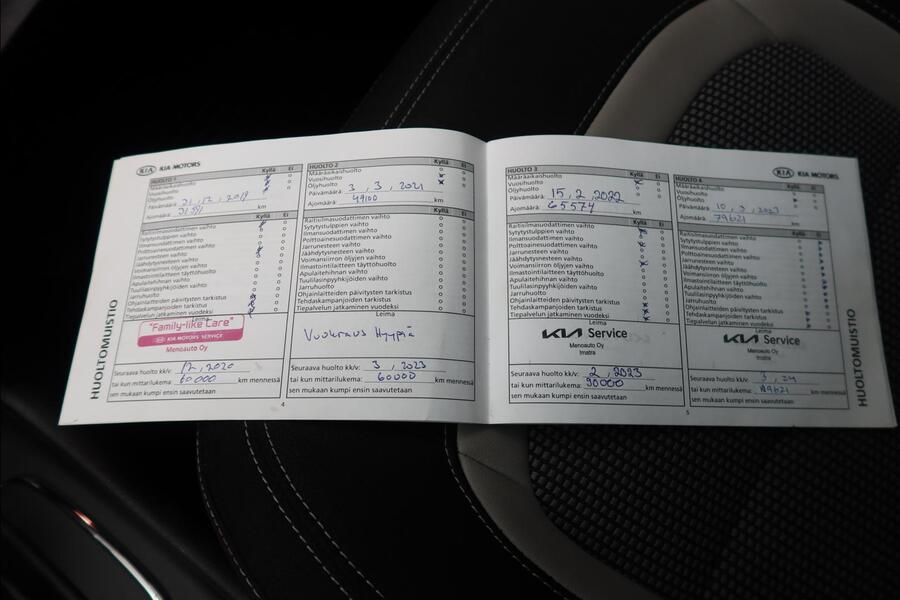 KIA KIA MOTORS
HUOLTO 1 Kyllä Ei
Määräaikaishuolto
Vuosihuolto
Öljyhuolto
Päivämäärä:
Ajomäärä: km
Kyllä Ei
Raitisilmasuodattimen vaihto
Sytytystulppien vaihto
Ilmansuodattimen vaihto
Polttoainesuodattimen vaihto
Jarrunesteen vaihto
Jäähdytysnesteen vaihto
Voimansiirron öljyjen vaihto
Ilmastointilaitteen täyttöhuolto
Apulaitehihnan vaihto
Tuulilasinpyyhkijöiden vaihto
Jarruhuolto
Ohjainlaitteiden päivitysten tarkistus
Tehdaskampanjoiden tarkistus
Tiepalvelun jatkaminen vuodeksi
Leima
"Family-like Care"
KIA MOTORS SERVICE
Menoauto Oy
Seuraava huolto kk/v: 12, 2020
tai kun mittarilukema: 60000 km mennessä
sen mukaan kumpi ensin saavutetaan
4
HUOLTOMUISTIO
HUOLTO 2 Kyllä Ei
Määräaikaishuolto
Vuosihuolto
Öljyhuolto
Päivämäärä: 3, 3, 2021
Ajomäärä: 49100 km
Kyllä Ei
Raitisilmasuodattimen vaihto
Sytytystulppien vaihto
Ilmansuodattimen vaihto
Polttoainesuodattimen vaihto
Jarrunesteen vaihto
Jäähdytysnesteen vaihto
Voimansiirron öljyjen vaihto
Ilmastointilaitteen täyttöhuolto
Apulaitehihnan vaihto
Tuulilasinpyyhkijöiden vaihto
Jarruhuolto
Ohjainlaitteiden päivitysten tarkistus
Tehdaskampanjoiden tarkistus
Tiepalvelun jatkaminen vuodeksi
Leima
Seuraava huolto kk/v: 3, 2023
tai kun mittarilukema: 60000 km mennessä
sen mukaan kumpi ensin saavutetaan
HUOLTO 3 Kyllä Ei
Määräaikaishuolto
Vuosihuolto
Öljyhuolto
Päivämäärä: 15, 2, 2022
Ajomäärä: 65574 km
Kyllä Ei
Raitisilmasuodattimen vaihto
Sytytystulppien vaihto
Ilmansuodattimen vaihto
Polttoainesuodattimen vaihto
Jarrunesteen vaihto
Jäähdytysnesteen vaihto
Voimansiirron öljyjen vaihto
Ilmastointilaitteen täyttöhuolto
Apulaitehihnan vaihto
Tuulilasinpyyhkijöiden vaihto
Jarruhuolto
Ohjainlaitteiden päivitysten tarkistus
Tehdaskampanjoiden tarkistus
Tiepalvelun jatkaminen vuodeksi
Leima
KIA Service
Menoauto Oy
Imatra
Seuraava huolto kk/v: 2, 2023
tai kun mittarilukema: 90000 km mennessä
sen mukaan kumpi ensin saavutetaan
5
KIA KIA MOTORS
HUOLTO 4 Kyllä Ei
Määräaikaishuolto
Vuosihuolto
Öljyhuolto
Päivämäärä: 10, 3, 2023
Ajomäärä: 79621 km
Kyllä Ei
Raitisilmasuodattimen vaihto
Sytytystulppien vaihto
Ilmansuodattimen vaihto
Polttoainesuodattimen vaihto
Jarrunesteen vaihto
Jäähdytysnesteen vaihto
Voimansiirron öljyjen vaihto
Ilmastointilaitteen täyttöhuolto
Apulaitehihnan vaihto
Tuulilasinpyyhkijöiden vaihto
Jarruhuolto
Ohjainlaitteiden päivitysten tarkistus
Tehdaskampanjoiden tarkistus
Tiepalvelun jatkaminen vuodeksi
Leima
KIA Service
Menoauto Oy
Imatra
Seuraava huolto kk/v: 3, 24
tai kun mittarilukema: km mennessä
sen mukaan kumpi ensin saavutetaan
HUOLTOMUISTIO